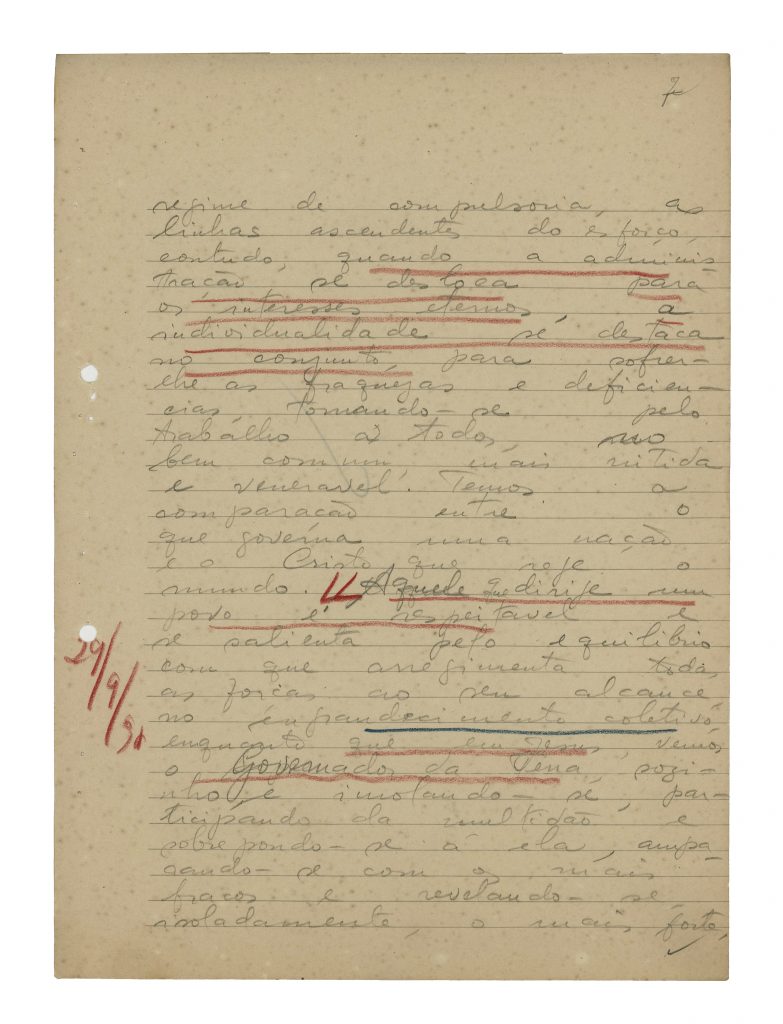 7
regime de compulsoria, as
linhas ascendentes do esforço,
contudo, quando a adminis
tração se desloca para
os interesses eternos, a
individualidade se destaca
no conjunto, para sofrer-
lhe as fraquezas e deficien-
cias, tornando-se pelo
trabalho a todos, no
bem comum, mais nitida
e veneravel. Temos a
comparação entre o
que governa uma nação
e o Cristo que rege o
mundo. Aquele que dirije um
povo é respeitavel e
se salienta pelo equilibrio
com que arregimenta todas
as forças ao seu alcance
no engrandecimento coletivo,
enquanto que em Jesus, vemos
o Governador da Terra, sozi-
nho, e imolando-se, par-
ticipando da multidão e
sobrepondo-se á ela, ampa
rando-se com os mais
fracos e revelando-se,
isoladamente, o mais forte,
29/9/